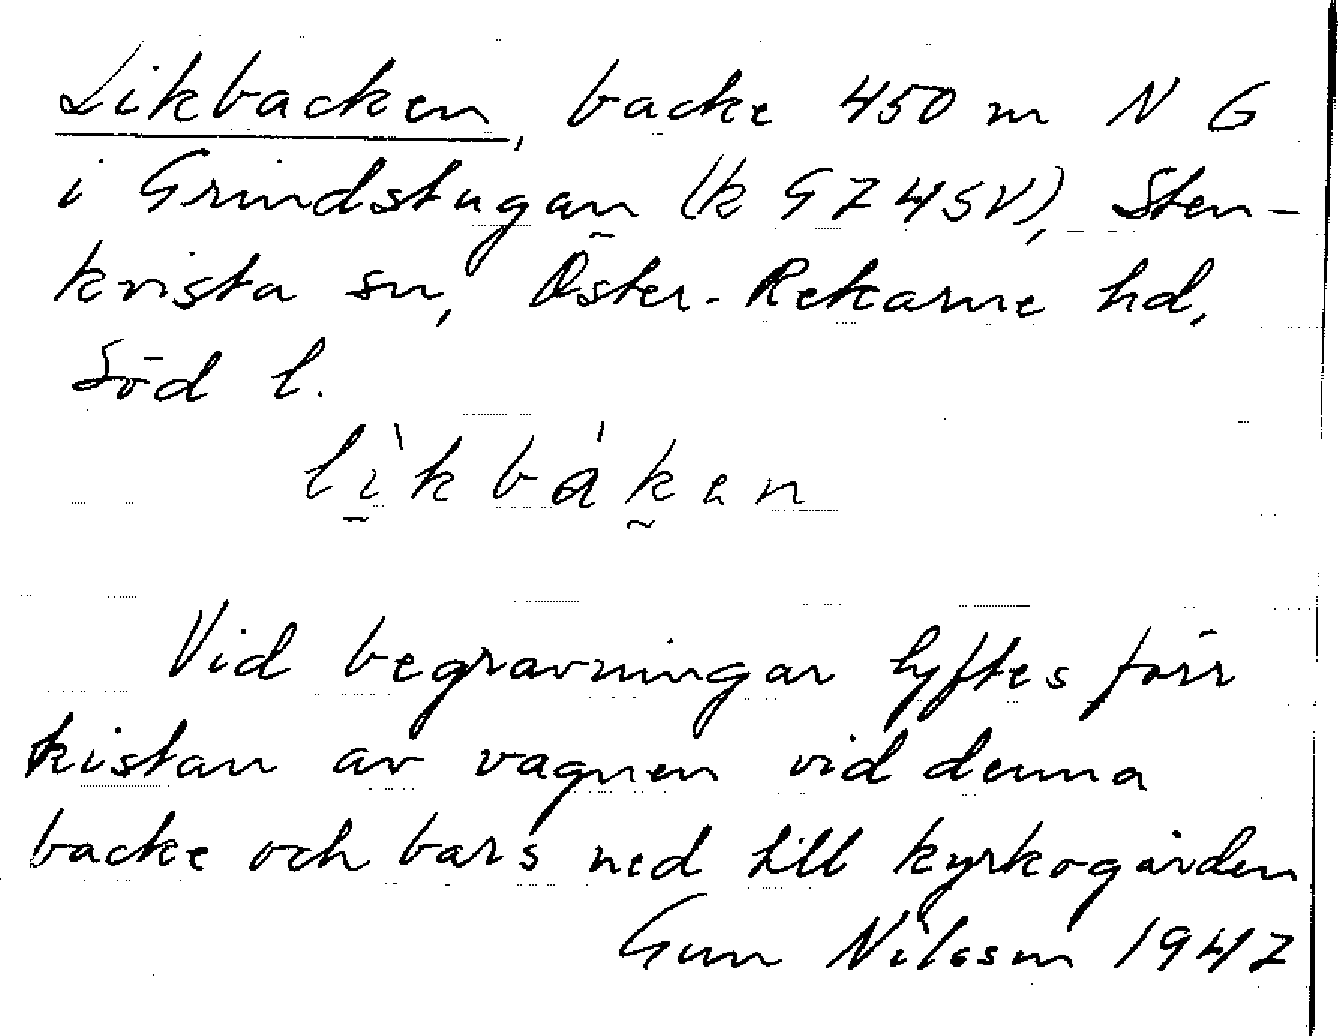 Likbacken, backe 450 m N G
i Grindstugan (k G745V), Sten-
kvista sn, Öster-Rekarne hd,
Söd l.
lì̠kbák̰en
Vid begravningar lyftes förr
kistan av vagnen vid denna
backe och bars ned till kyrkogården
Gun Nilsson 1947